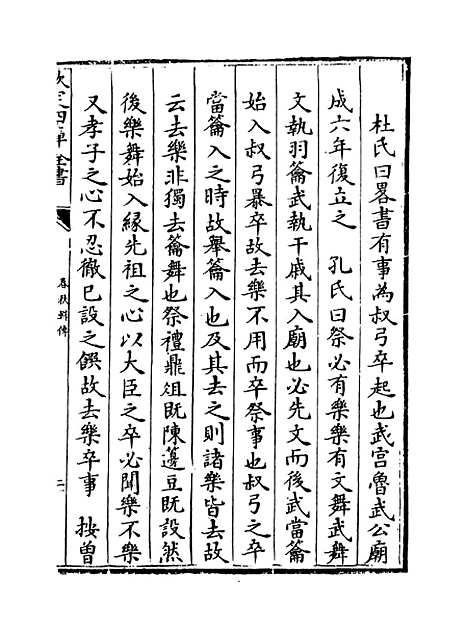 杜氏曰畧書有事為叔弓卒起也武宫魯武公廟
成六年復立之　孔氏曰祭必有樂樂有文舞武舞
文執羽籥武執干戚其入廟也必先文而後武當籥
始入叔弓暴卒故去樂不用而卒祭事也叔弓之卒
當籥入之時故舉籥入也及其去之則諸樂皆去故
云去樂非獨去籥舞也祭禮鼎俎既陳籩豆既設然
後樂舞始入縁先祖之心以大臣之卒必聞樂不樂
又孝子之心不忍徹已設之饌故去樂卒事　按曽
欽定四庫全書
春秋輯傳
二